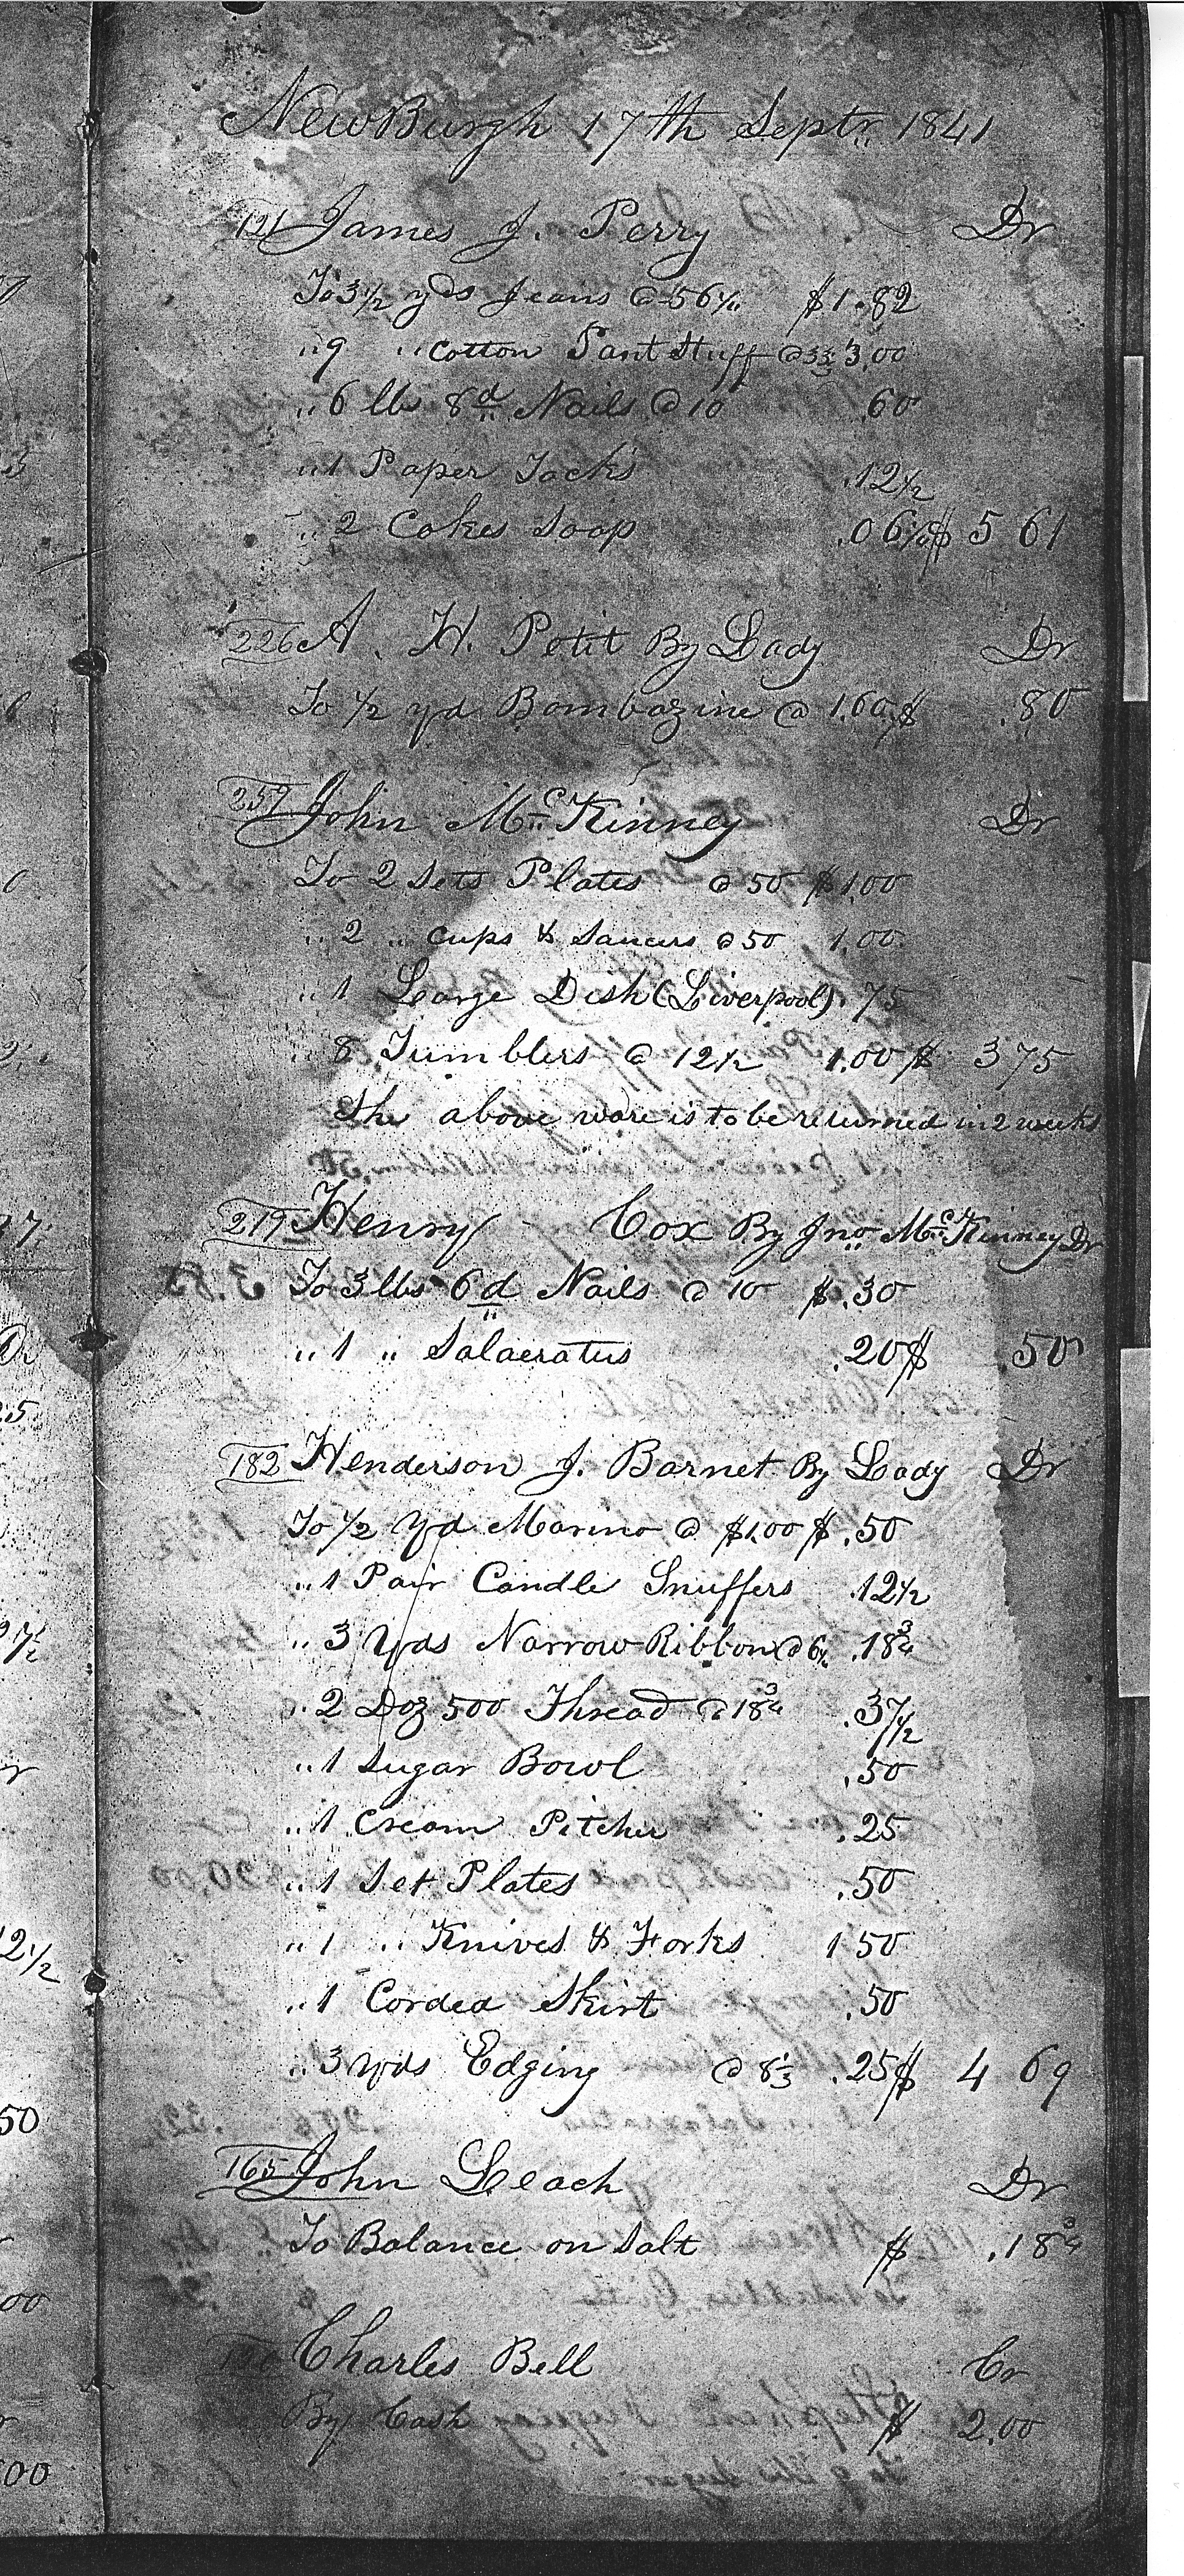 NewBurgh 17th Septr. 1841
121 James J. Perry Dr
To 3 1/2 yds Jeans @ 56 1/4 $1.82
" 9 " Cotton Pant Stuff @ 33 1/3 3.00
" 6 lbs 8d Nails @ 10 .60
" 1 Paper Tacks .12 1/2
" 2 Cakes Soap .06 1/4 $ 5 61
226 A. H. Petit By Lady Dr
To 1/2 yd Bombazine @ 1.60 $ .80
John McKinney Dr
To 2 Sets Plates @ 50 $1.00
" 2 " Cups & Saucers @ 50 1.00
" 1 Large Dish (Liverpool) .75
" 8 Tumblers @ 12 1/2 1.00 $ 3 75
The above ware is to be returned in 2 weeks
219 Henry Cox By Jno. McKinney Dr
To 3 lbs 6d Nails @ 10 $.30
" 1 " Salaeratus .20 $ .50
182 Henderson J. Barnet By Lady Dr
To 1/2 Yd Marino @ $1.00 $.50
" 1 Pair Candle Snuffers .12 1/2
" 3 Yds Narrow Ribbon @ 6 1/4 .18 3/4
" 2 Doz 500 Thread @ 18 3/4 .37 1/2
" 1 Sugar Bowl .50
" 1 Cream Pitcher .25
" 1 Set Plates .50
" 1 " Knives & Forks 1 50
" 1 Corded Skirt .50
" 3 Yds Edging @ 8 1/3 .25 $ 4 69
165 John Leach Dr
To Balance on Salt $ .18 3/4
Charles Bell Cr
By Cash $ 2.00